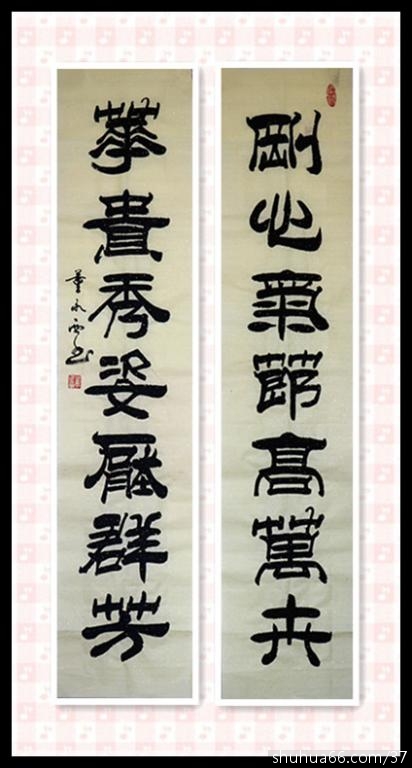 剛心氣節高萬卉
華貴秀姿壓群芳
董永书
shuhua66.com/57